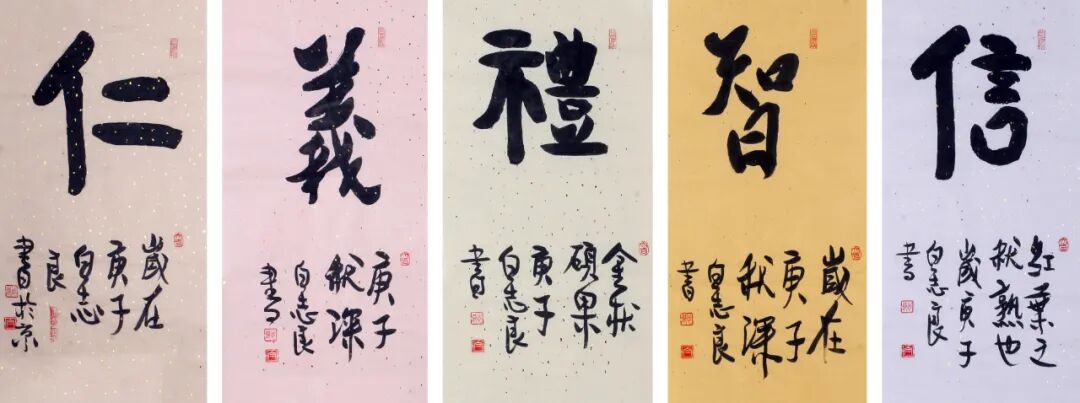 仁
歲在
庚子
白志
良
書於京
義
庚子
秋深
白志良
書
禮
金秋
碩果
庚子
白志良
書
智
歲在
庚子
秋深
白志良
書
信
紅葉之
秋熟也
歲庚子
白志良
書